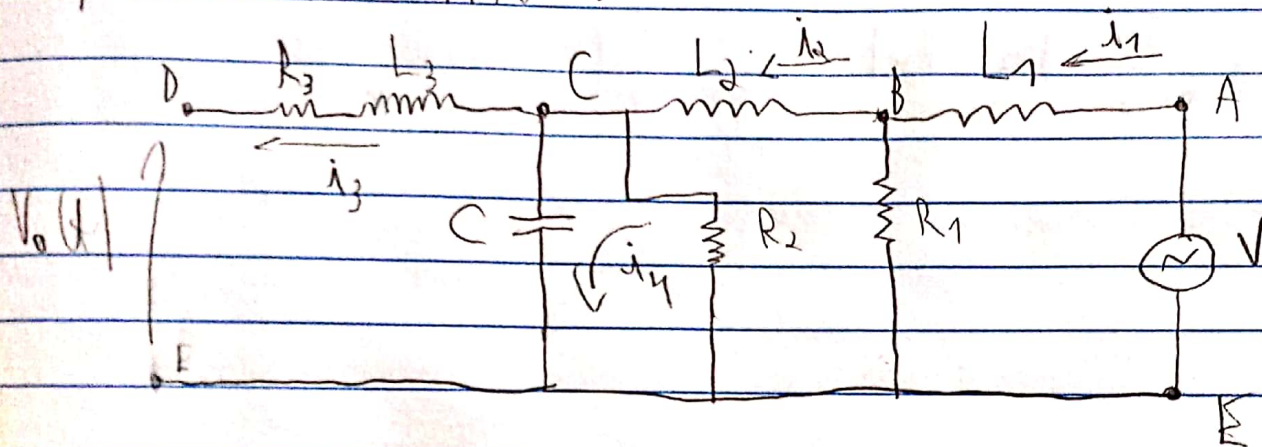 D R3 L3 C L2 i2 B L1 i1 A
i3
V0(t) C i4 R2 R1 V
E E